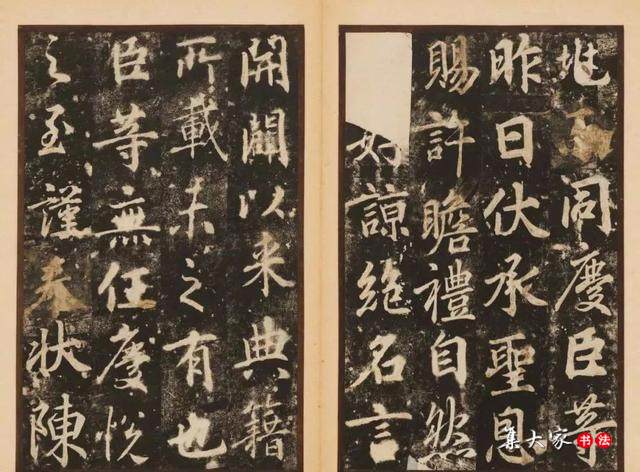 地同慶臣等
昨日伏承聖恩
賜許瞻禮自然
妙諒絕名言
開闢以來典籍
所載未之有也
臣等無任慶悅
之至謹奉狀陳
集大家书法